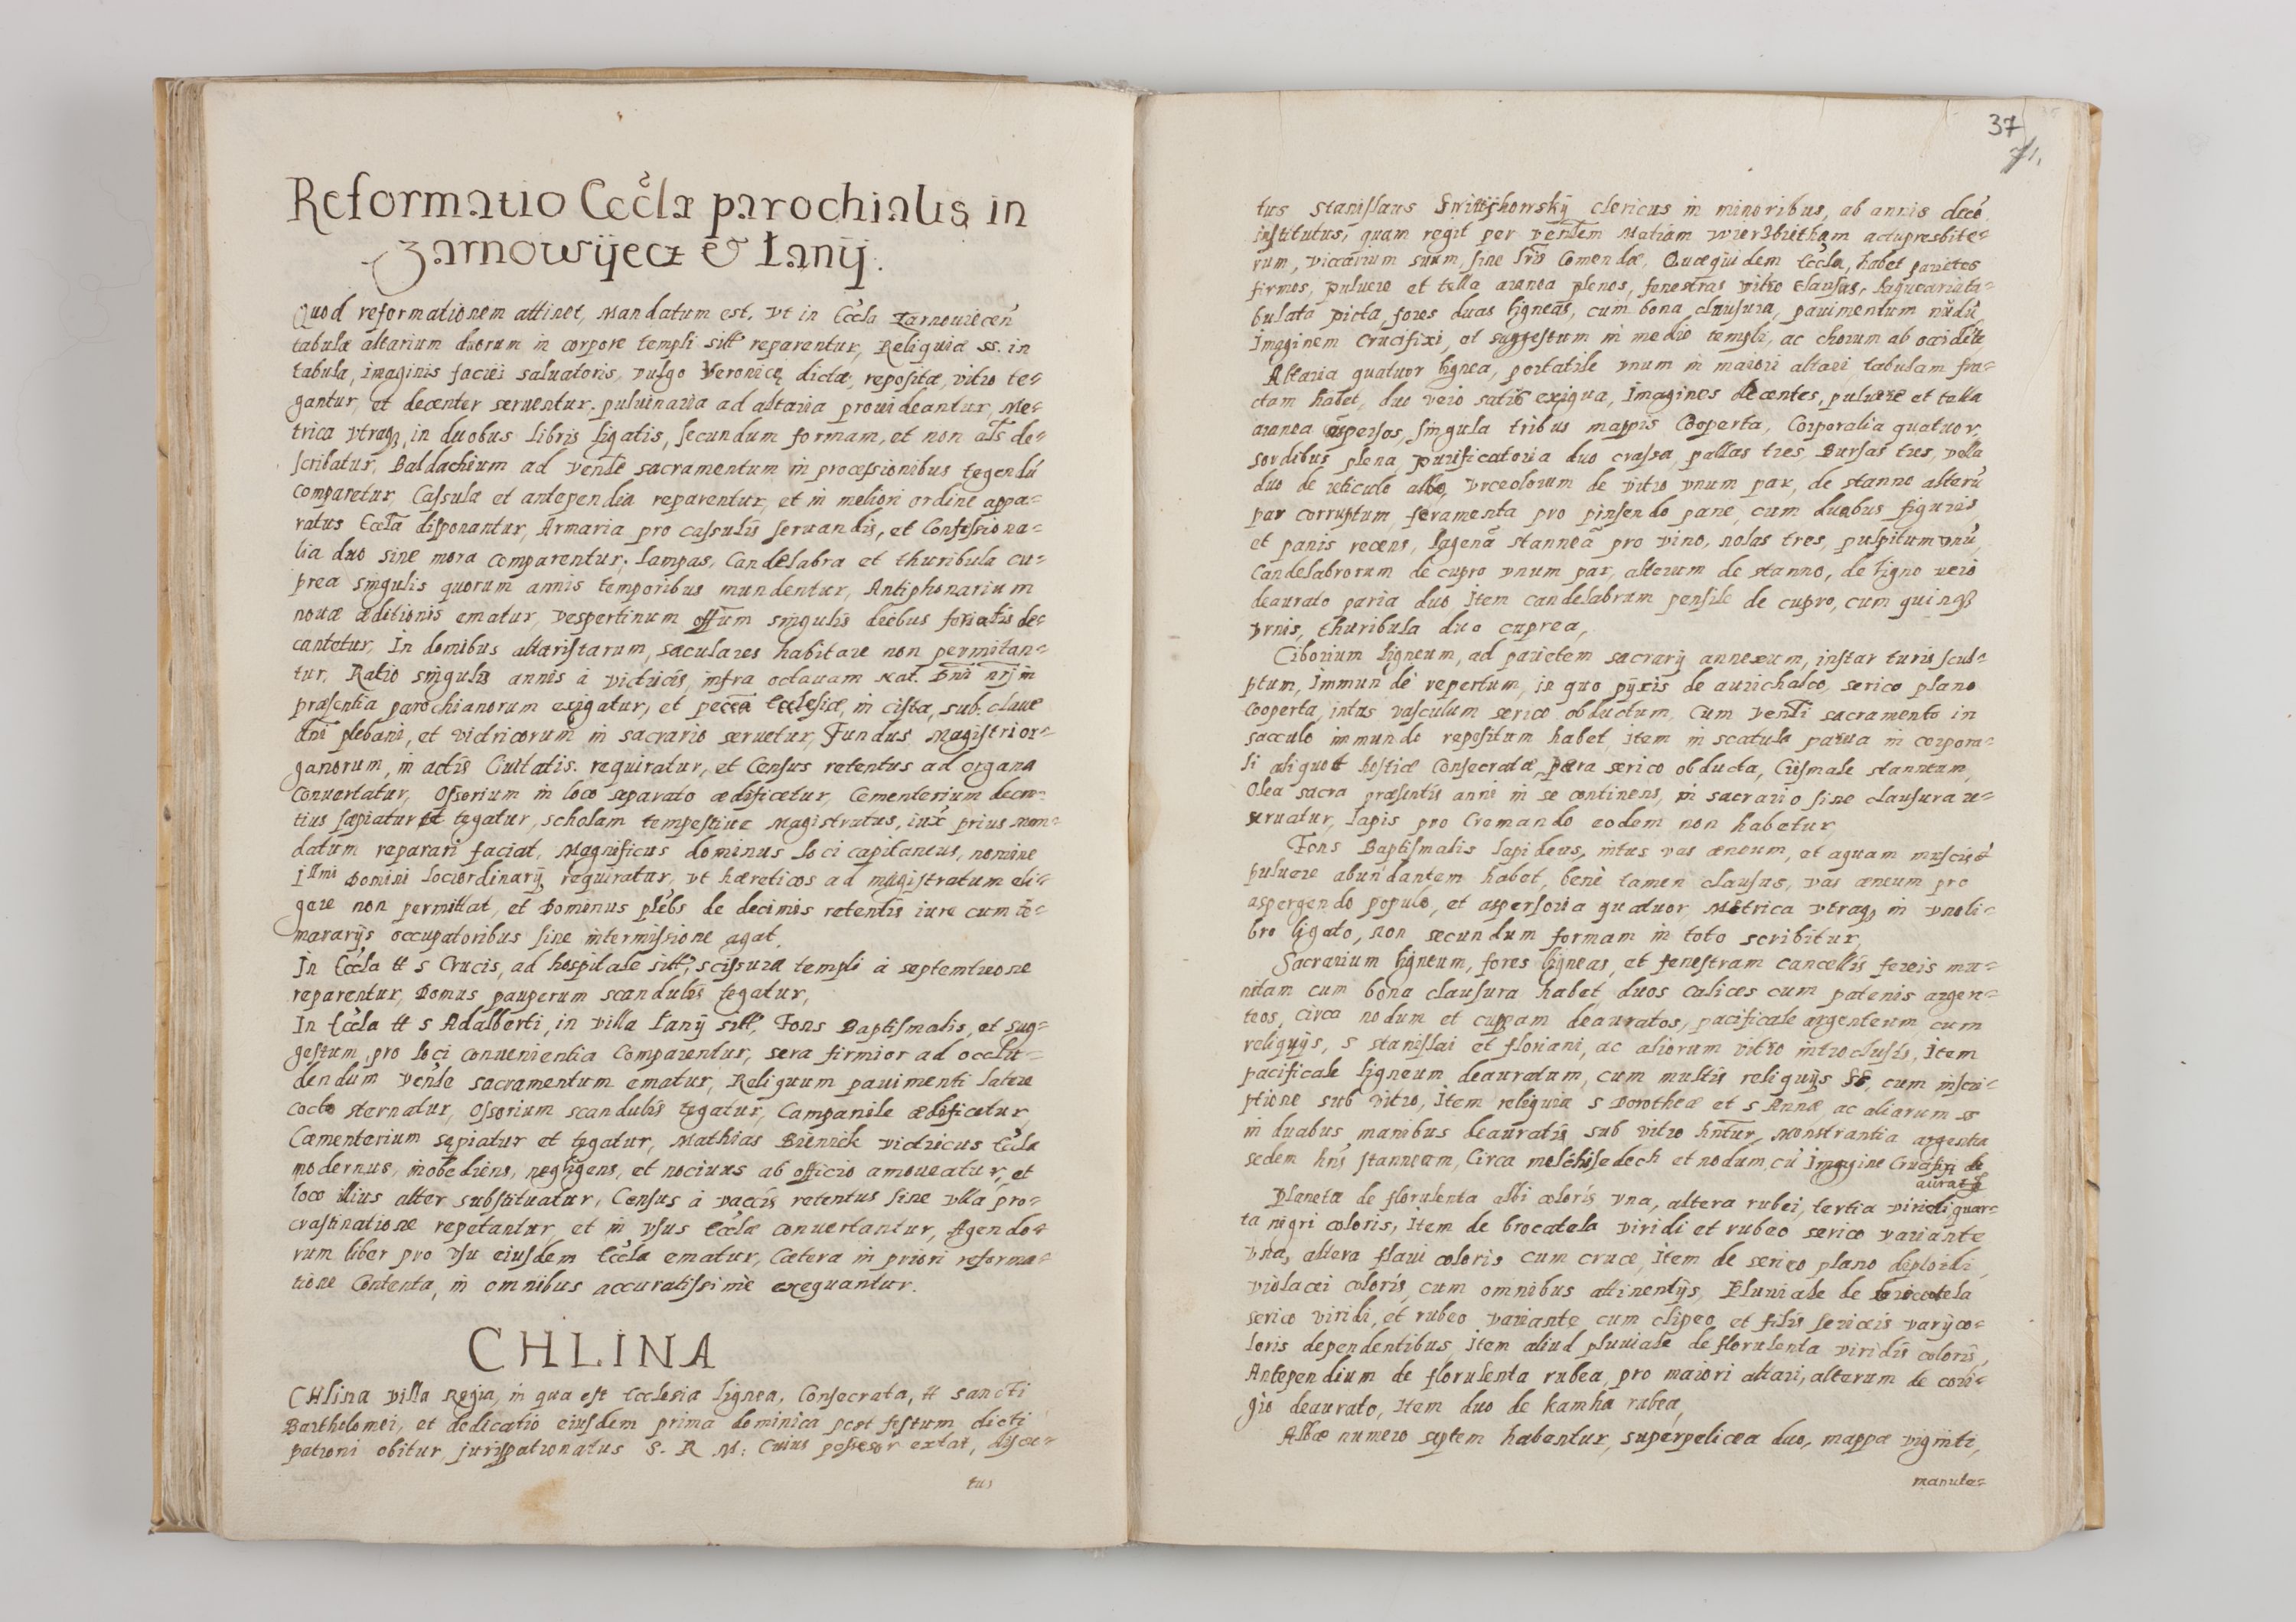 Reformatio Eccła parochialis in
Zarnowÿecz & Łanÿ.
Quod reformationem attinet, Mandatum est, vt in Eccła Zarnouiecen
tabulæ altarium duorum in corpore templi sitt reparentur, Reliquiæ SS. in
tabula, imaginis faciei saluatoris, vulgo Veronicę dictæ, repositæ, vitro te=
gantur, et decenter seruentur. puluinaria ad altaria prouideantur, Me=
trica vtraq3 in duobus libris ligatis, secundum formam, et non als de=
scribatur, Baldachium ad venle sacramentum in processionibus tegendū
comparetur, Casulæ et antependia reparentur, et in meliori ordine appa=
ratus Eccla disponantur, Armaria pro casulis seruandis, et Confessiona=
lia duo sine mora comparentur; lampas, Candelabra et thuribula cu=
prea singulis quorum annis temporibus mundentur, Antiphonarium
nouæ æditionis ematur, vespertinum offum singulis diebus feriatis de=
cantetur, In domibus altaristarum, sæculares habitare non permitan=
tur, Ratio singulis annis à vidricis, infra octauam Nat. Dni nrj in
præsentia parochianorum exigatur, et pecca Ecclesiæ, in cista, sub. claue
dni plebani, et vidricorum in sacrario seruetur, Fundus Magistri or=
ganorum, in actis Ciuitatis. requiratur, et Census retentus ad organa
conuertatur, Ossorium in loco separato ædificetur, Cementerium decen=
tius sæpiatur et tegatur, scholam tempestiue Magistratus, iux prius man=
datum reparari faciat, Magnificus dominus loci capitaneus, nomine
Illmi Domini lociordinarij, requiratur, vt hæreticos ad magistratum eli=
gere non permittat, et Dominus plebs de decimis retentis iure cum cō=
mararijs occupatoribus sine intermissione agat.
In Eccla tt s Crucis, ad hospitale sitt, scissura templi à septemtrione
reparentur, Domus pauperum scandulis tegatur,
In Eccla tt s Adalberti, in villa Łanÿ sitt, Fons Baptismalis, et sug=
gestum, pro loci conuenientia comparentur, sera firmior ad occlu=
dendum venle sacramentum ematur, Reliquum pauimenti latere
cocto sternatur, Ossorium scandulis tegatur, Campanile ædificetur,
Cæmenterium sępiatur et tegatur, Mathias Biennick vidricus Eccla
modernus, inobediens, negligens, et nociuus ab officio amoueatur, et
loco illius alter substituatur, Census à vaccis retentus sine vlla pro=
crastinatione repetantur, et in vsus Ecclæ conuertantur, Agendo=
rum liber pro vsu eiusdem Eccla ematur, Cætera in priori reforma=
tione Contenta, in omnibus accuratissimè exequantur.
CHLINA
CHlina villa Regia, in qua est Ecclesia lignea, Consecrata, tt sancti
Bartholomei, et dedicatio eiusdem prima dominica post festum dicti
patroni obitur, jurispatronatus S. R. M: Cuius possesor extat,
tus
37
71.
tus Stanislaus clericus in minoribus, ab annis decē
institutus, quam regit per venlem actupresbite=
rum, viccarium suum, sine lris Comendæ, Quæquidem Eccla, habet parietes
firmos, puluere et tella aranea plenos, fenestras vitro clausas, laqueariata=
bulata picta, fores duas ligneas, cum bona clausura, pauimentum nudū
Imaginem Crucifixi, et suggestum in medio templi, ac chorum ab occidēte
Altaria quatuor lignea, portatile vnum in maiori altari, tabulam fra=
ctam habet, duo vero satis exigua, Imagines decentes, puluere et tella
aranea aspersos, singula tribus mappis Cooperta, Corporalia quatuor,
sordibus plena, purificatoria duo crassa, pallas tres, Bursas tres, vella
duo de reticulo albo, vrceolorum de vitro vnum par, de stanno alterū
par corruptum, feramenta pro pinsendo pane, cum duabus figuris
et panis recens, lagenā stanneā pro vino, nolas tres, pulpitum vnū,
Candelabrorum de cupro vnum par, alterum de stanno, de ligno vero
deaurato paria duo, Item candelabrum pensile de cupro, cum quinq3
vrnis, thuribula duo cuprea,
Ciborium ligneum, ad parietem sacrarij annexum, instar turis scul=
ptum, immundè repertum, in quo pÿxis de aurichalco, serico plano
cooperta, intus vasculum serico obductum, Cum venli sacramento in
sacculo immundo repositum habet, item in scatula parua in corpora=
li aliquot hostiæ Consecratæ, pera serico obducta, Crismale stanneum,
Olea sacra præsentis anni in se continens, in sacrario sine clausura re=
seruatur, lapis pro Cremando eodem non habetur,
Fons Baptismalis lapideus, intus vas æneum, et aquam
puluere abundantem habet, benè tamen clausus, vas æneum pro
aspergendo populo, et aspersoria quatuor, Metrica vtraq3 in vnoli=
bro ligato, non secundum formam in toto scribitur,
Sacrarium ligneum, fores ligneas, et fenestram cancellis fereis mu=
nitam cum bona clausura habet, duos calices cum patenis argen=
teos, circa nodum et cuppam deauratos, pacificale argenteum cum
reliquijs, s stanislai et floriani, ac aliorum vitro introclusis, Item
pacificale ligneum deauratum, cum multis reliquijs SS, cum inscri=
ptione sub vitro, Item reliquia s Dorotheæ et s Annæ, ac aliarum ss
in duabus manibus deauratis sub vitro hntur, Monstrantia argentea
sedem hns stanneam, Circa melchisedech et nodum, cū imagine Crucifixi de
aurat
Planeta de florulenta albi coloris vna, altera rubei, tertia viridi, quar=
ta nigri coloris, Item de brocatela viridi et rubeo serico variante
vna, altera flaui coloris cum cruce, Item de serico plano diploidi,
violacei coloris, cum omnibus attinentijs, Pluuiale de brocatela
serico viridi, et rubeo variante cum clipeo et filis sericeis varijco=
loris dependentibus, Item aliud pluuiale de florulenta viridis coloris,
Antependium de florulenta rubea, pro maiori altari, alterum de cori=
gio deaurato, Item duo de kamha rubea,
Albæ numero septem habentur, superpelicea duo, mappa viginti,
manute=